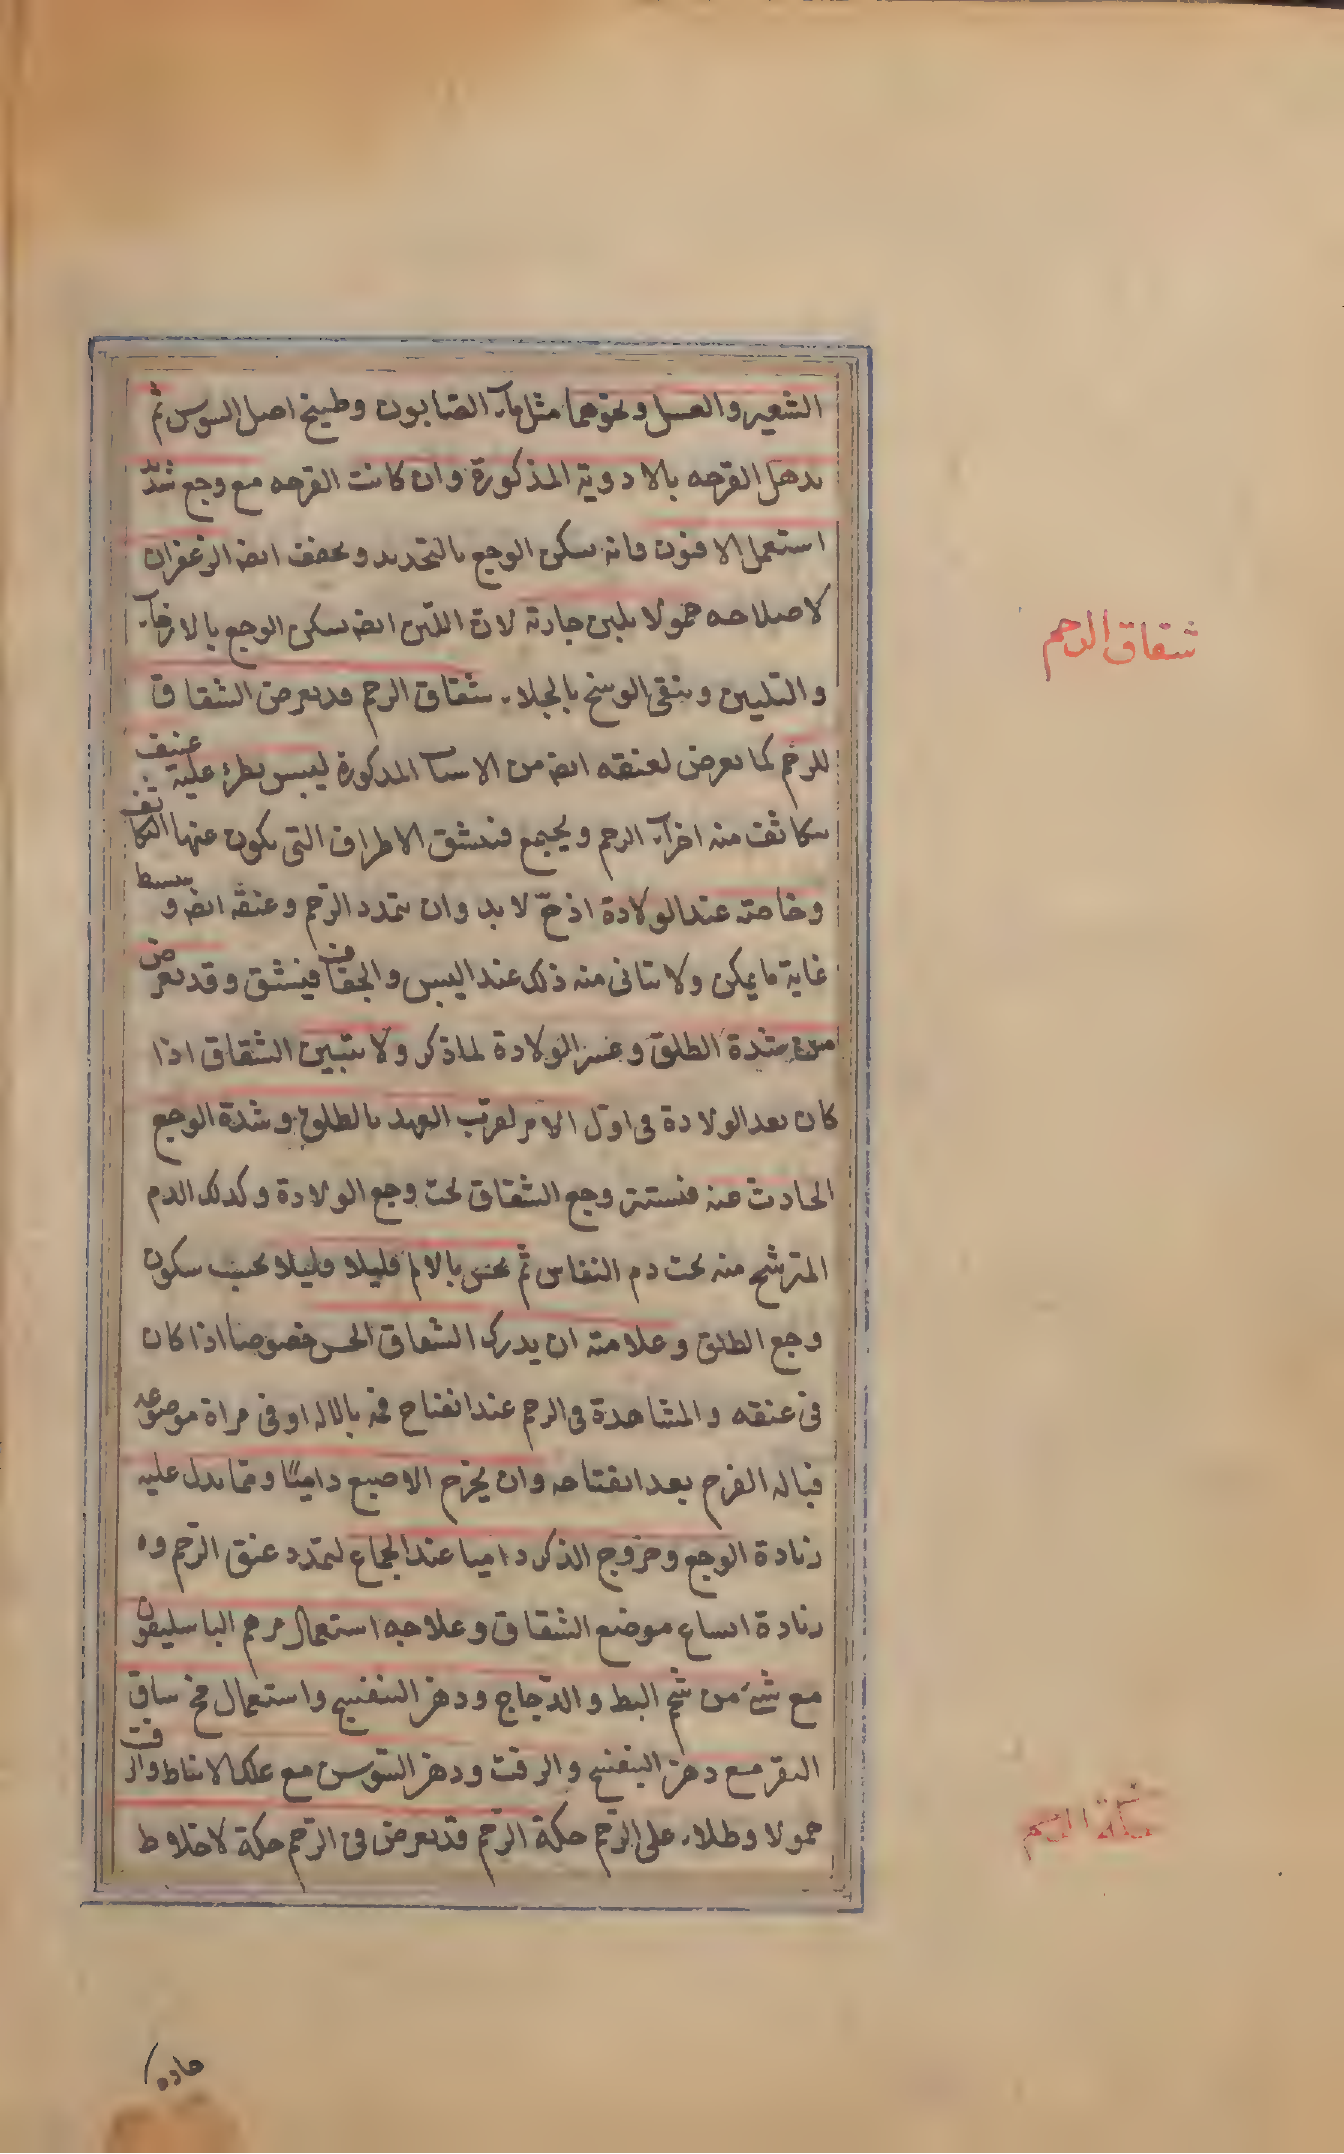 الشعير والعسل ونحوهما مثل ماء الصابون وطبيخ اصل السوس ثم
يدمل القرحه بالادوية المذكورة وان كانت القرحه مع وجع شديد
استعمل الافيون فانه يسكن الوجع بالتخدير ويجفف ايضه الزعفران
لاصلاحه حمولا بلبن جارية لان اللبن ايضه يسكن الوجع بالارخاء
والتليين وينقى الوسخ بالجلاء شقاق الرحم قد يعرض الشقاق
شقاق الرحم
للرحم كما يعرض لعنقه ايضه من الاسباب المذكورة ليبس يطرء عليه عنيف
يتكاثف منه اجزاء الرحم ويجمع فينشق الاطراف التى يكون عنها التكاثف
وخاصة عند الولادة اذ ح لا بد وان يتمدد الرحم وعنقه ايضه وينبسط
غاية ما يمكن ولا يتاتى منه ذلك عند اليبس والجفاف فينشق وقد يعرض
من شدة الطلق وعسر الولادة لما ذكر ولا يتبين الشقاق اذا
كان بعد الولادة فى اول الامر لقرب العهد بالطلوق وشدة الوجع
الحادث عنه فيستتر وجع الشقاق تحت وجع الولادة وكذلك الدم
المترشح منه تحت دم النفاس ثم يحس بالالم قليلا قليلا بحسب سكون
وجع الطلق وعلامته ان يدرك الشقاق الحس خصوصا اذا كان
فى عنقه والمشاهدة فى الرحم عند انفتاح فمه بالاله او فى مراة موضوعه
قباله الفرج بعد انفتاحه وان يخرج الاصبع داميا ومما يدل عليه
زيادة الوجع وخروج الذكر داميا عند الجماع لتمدد عنق الرحم و
زيادة اتساع موضع الشقاق وعلاجه استعمال مرهم الباسليقون
مع شئ من شحم البط والدجاج ودهن البنفسج واستعمال مخ ساق
البقر مع دهن البنفسج والزفت ودهن السوسن مع علك الانباط والزفت
حمولا وطلاء على الرحم حكة الرحم قد يعرض فى الرحم حكة لاخلاط
حكة الرحم
حاده